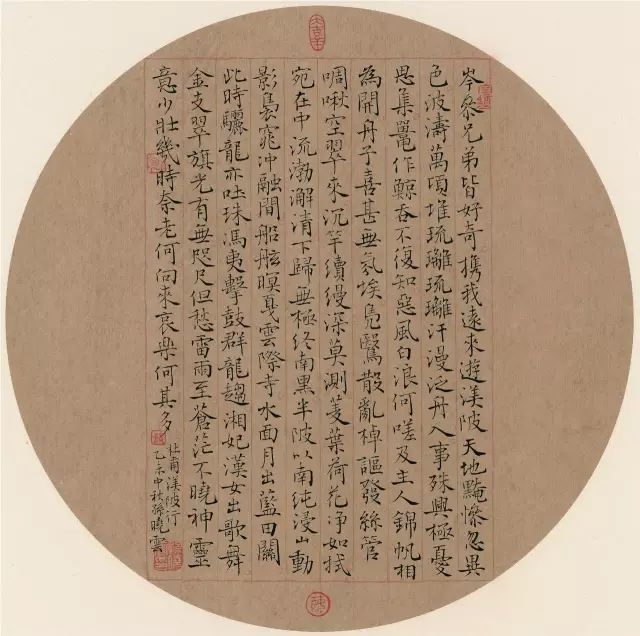 岑參兄弟皆好奇携我遠來遊渼陂天地黤慘忽異
色波濤萬頃堆琉璃琉璃汗漫泛舟入事殊興極憂
思集鼉作鯨吞不復知惡風白浪何嗟及主人錦帆相
為開舟子喜甚無氛埃鳧鷖散亂棹謳發絲管
啁啾空翠來沉竿續縵深莫測菱葉荷花净如拭
宛在中流渤澥清下歸無極終南黑半陂以南純浸山動
影裊窕沖融間船舷暝戛雲際寺水面月出藍田關
此時驪龍亦吐珠馮夷擊鼓群龍趨湘妃漢女出歌舞
金支翠旗光有無咫尺但愁雷雨至蒼茫不曉神靈
意少壯幾時奈老何向來哀樂何其多
杜甫渼陂行
乙未中秋孫曉雲
大吉羊